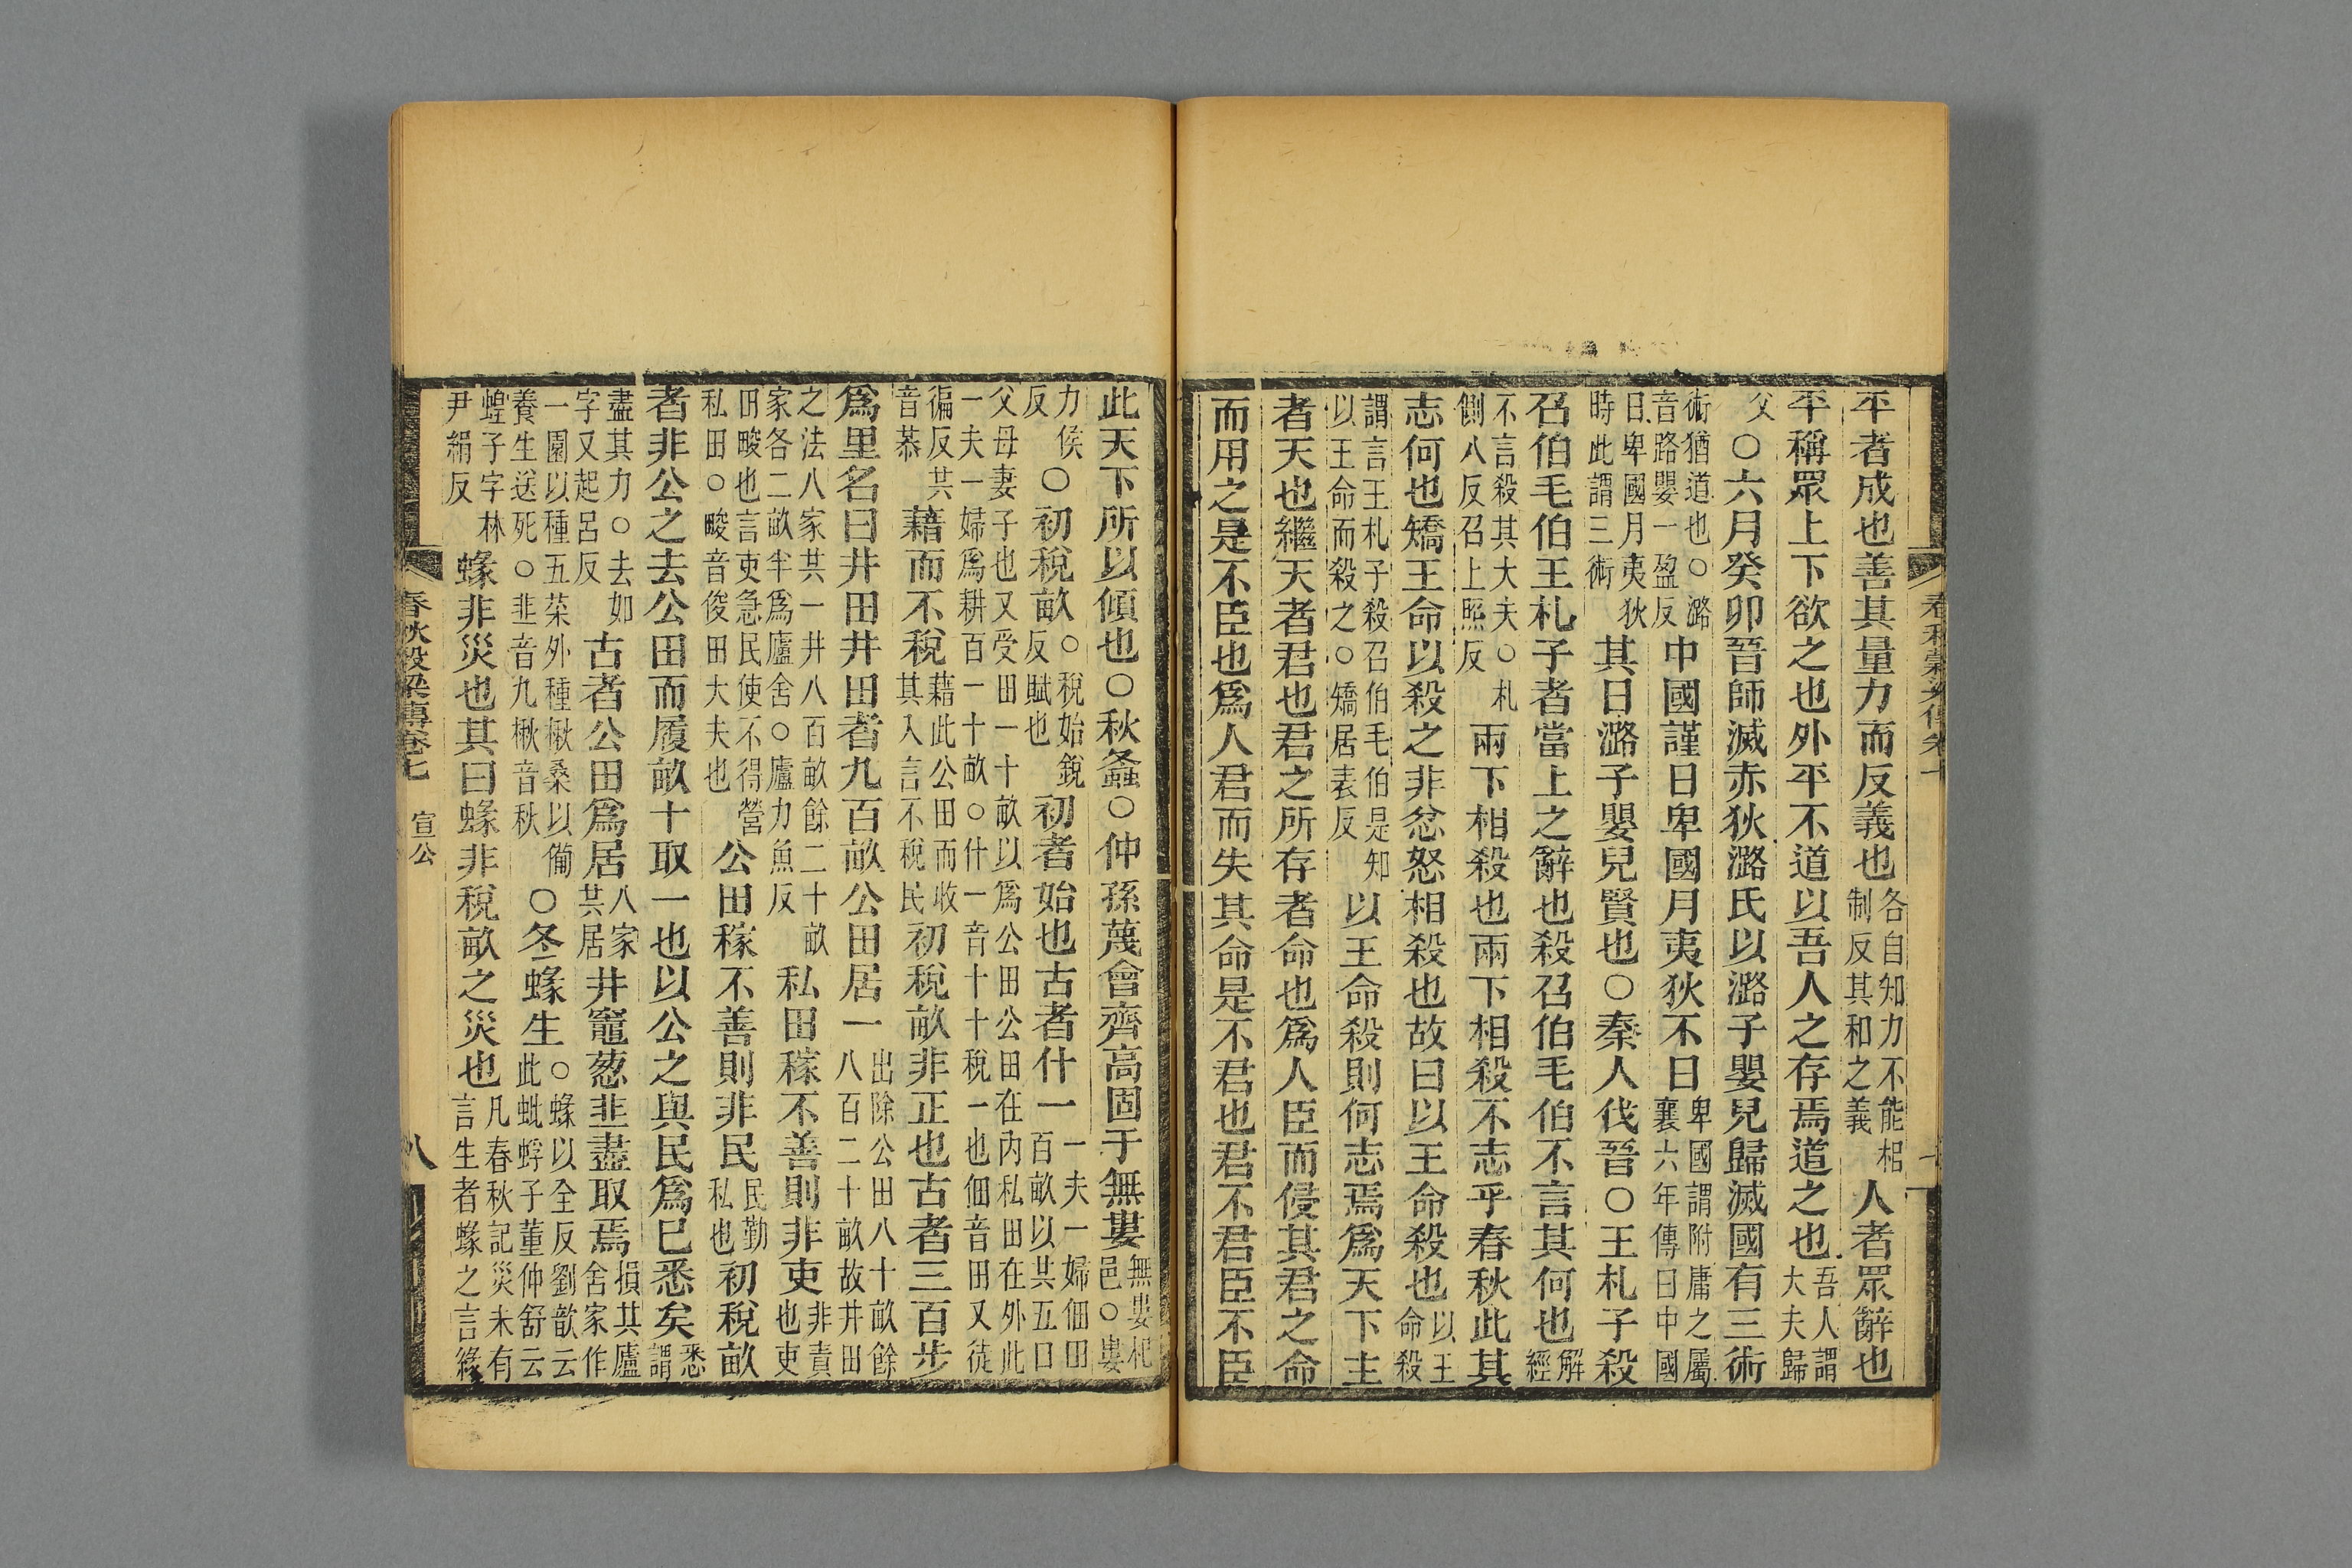 平者成也善其量力而反義也各自知力不能相制反其和之義人者眾辭也
平稱眾上下欲之也外平不道以吾人之存焉道之也吾人謂大夫歸
父○六月癸卯晉師滅赤狄潞氏以潞子嬰兒歸滅國有三術
術猶道也○潞音路嬰一盈反中國謹日卑國月夷狄不日卑國謂附庸之屬襄六年傳曰中國
日卑國月夷狄時此謂三術其日潞子嬰兒賢也○秦人伐晉○王札子殺
召伯毛伯王札子者當上之辭也殺召伯毛伯不言其何也解經
不言殺其大夫○札側八反召上照反兩下相殺也兩下相殺不志乎春秋此其
志何也矯王命以殺之非忿怒相殺也故曰以王命殺也以王命殺
謂言王札子殺召伯毛伯是知以王命而殺之○矯居表反以王命殺則何志焉為天下主
者天也繼天者君也君之所存者命也為人臣而侵其君之命
而用之是不臣也為人君而失其命是不君也君不君臣不臣
此天下所以傾也○秋螽○仲孫蔑會齊高固于無婁無婁杞邑○婁
力侯反○初稅畝○稅始銳反賦也初者始也古者什一一夫一婦佃田百畝以共五口
父母妻子也又受田一十畝以為公田公田在內私田在外此一夫一婦為耕百一十畝○什一音十十稅一也佃音田又徒
徧反共音恭藉而不稅藉此公田而收其入言不稅民初稅畝非正也古者三百步
為里名曰井田井田者九百畝公田居一出除公田八十畝餘八百二十畝故井田
之法八家共一井八百畝餘二十畝家各二畝半為廬舍○廬力魚反私田稼不善則非吏非責也吏
田畯也言吏急民使不得營私田○畯音俊田大夫也公田稼不善則非民民勤私也初稅畝
者非公之去公田而履畝十取一也以公之與民為已悉矣悉謂
盡其力○去如字又起呂反古者公田為居八家共居井竈葱韭盡取焉損其廬舍家作
一園以種五菜外種楸桑以備養生送死○韭音九楸音秋○冬蝝生○蝝以全反劉歆云此蚍蜉子董仲舒云
蝗子字林尹絹反蝝非災也其曰蝝非稅畝之災也凡春秋記災未有言生者蝝之言緣
春秋穀梁傳卷七 宣公 八